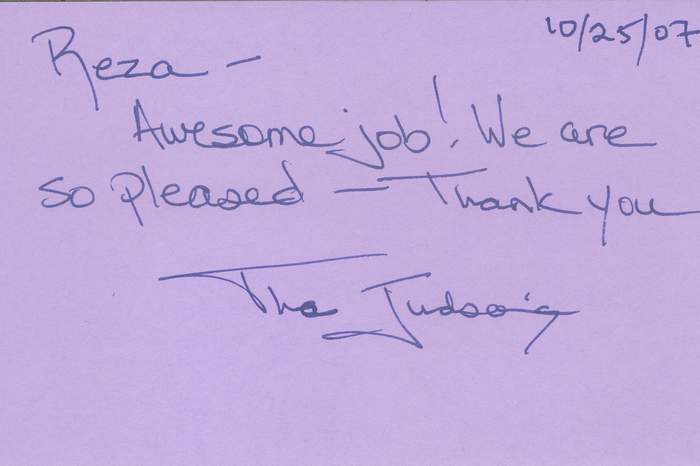 10/25/07
Reza —
Awesome job! We are
so pleased — Thank you
The